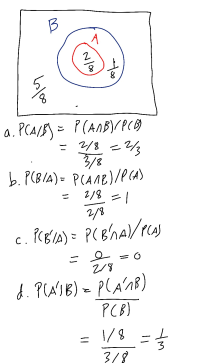 B
A
2/8
1/8
5/8
a. P(A/B) = P(A∩B)/P(B)
= 2/8 / 3/8 = 2/3
b. P(B/A) = P(A∩B)/P(A)
= 2/8 / 2/8 = 1
c. P(B'/A) = P(B'∩A)/P(A)
= 0 / 2/8 = 0
d. P(A'|B) = P(A'∩B) / P(B)
= 1/8 / 3/8 = 1/3